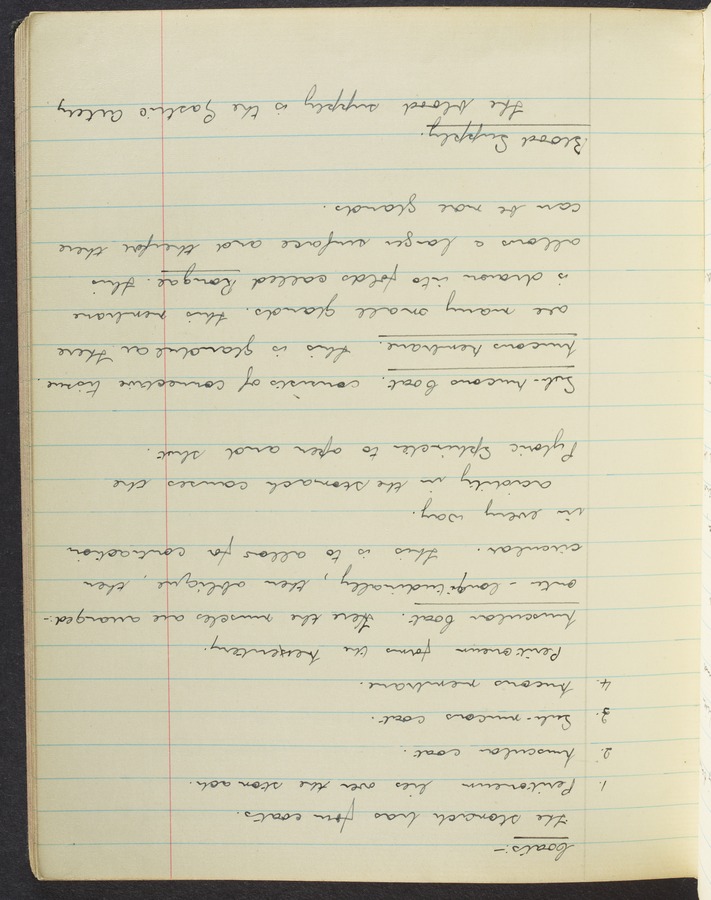 Coats:-
The stomach has four coats.
1. Peritoneum lies over the stomach.
2. Muscular coat.
3. Sub-mucous coat.
4. Mucous membrane.
Peritoneum forms the messentery.
Muscular Coat. Here the muscles are arranged:-
longitudinally, then oblique, then
circular. This is to allow for contraction
in every way.
acidity in the stomach causes the
Pyloric Sphincter to open and shut.
Sub-Mucous Coat. consists of connective tissue.
Mucous Membrane. This is glandular there
are many small glands. This membrane
is drawn into folds called Rongae. This
allows a larger surface and therefor there
can be more glands.
Blood Supply.
The blood supply is the Gastric Artery